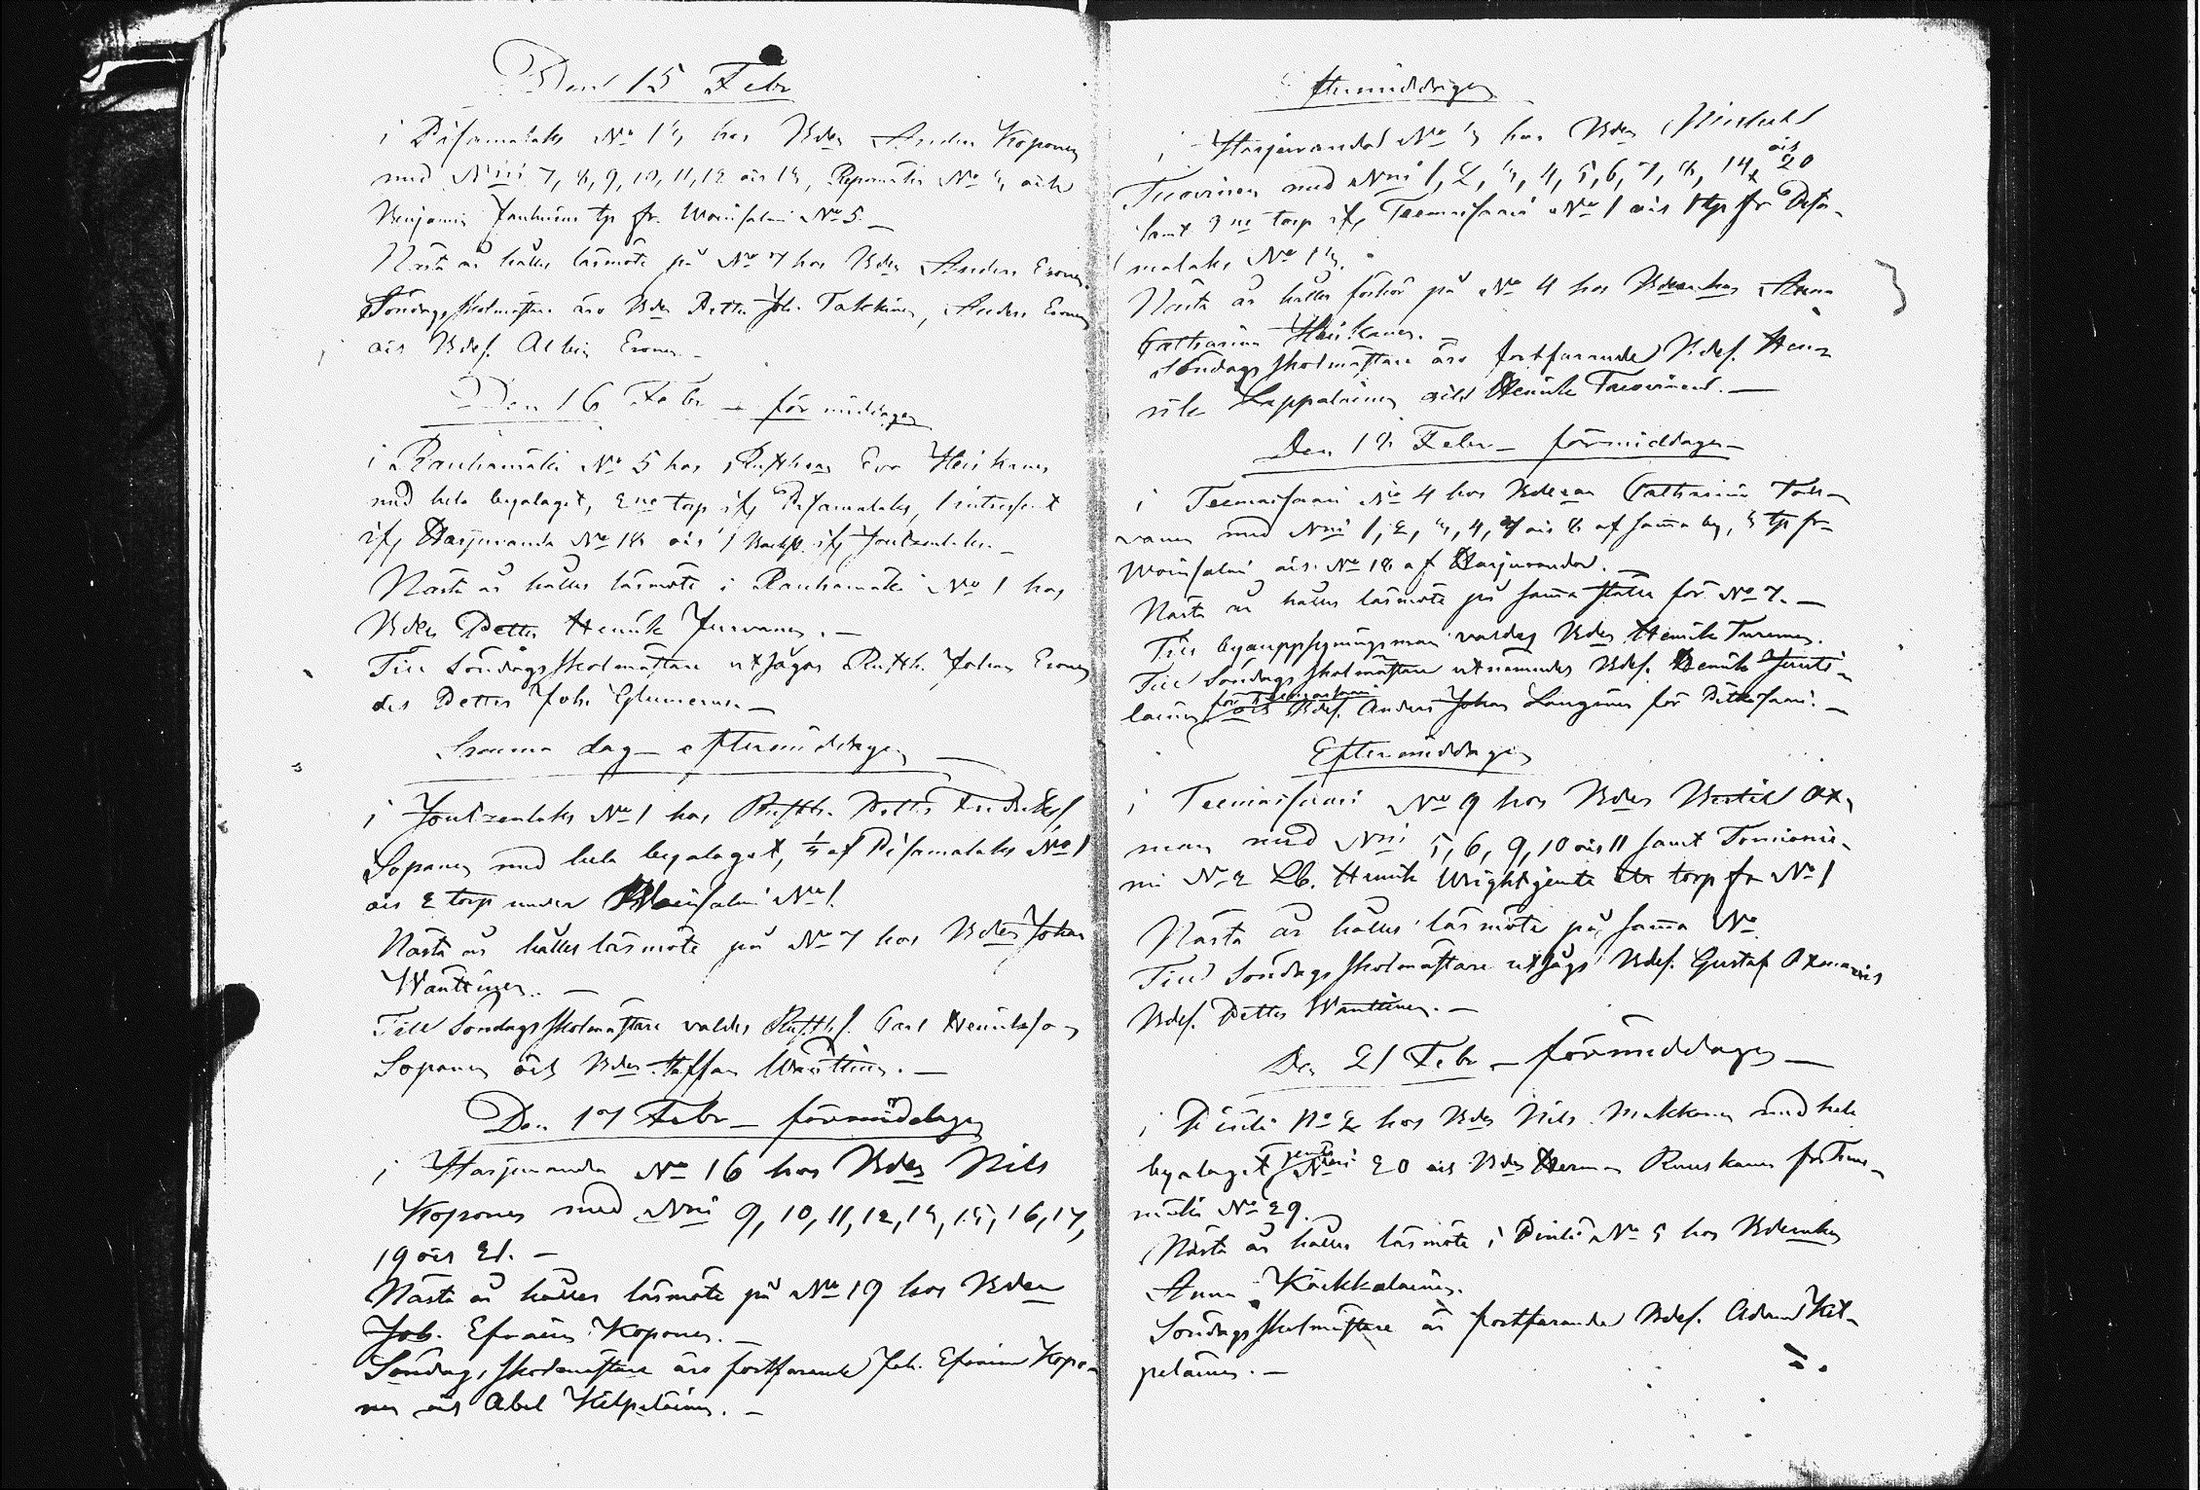 Den 15 Febr
i Pisamalaks No 13 hos Bden Anders Koponen
med Nrii 7, 8, 9, 10, 11, 12 och 13, Repomäki No 3 och
Benjamin Jauhiains tp fr. Woinsalmi No 5 —
Nästa år hålles läsmöte på No 7 hos Bden Anders Eronen.
Söndagsskolmästare äro Bden Petter Joh. Takkinen, Anders Eronen
och Bdes. Albin Eronen. —
Den 16 Febr — förmiddagen
i Rauhamäki No 5 hos Eva Heiskanen
med hela byalaget, 2ne torp ifr Pisamalaks, 1
ifr Harjuranda No 18 och 1 ifr Joutzenlaks. —
Nästa år hålles läsmöte i Rauhamäki No 1 hos
Bden Petter Henrik Jurvanen. —
Till Söndagsskolmästare utsågos Johan Eronen
och Petter Joh. Glumerus. —
Samma dag — eftermiddagen —
i Joutzenlaks No 1 hos Petter Fredriks
Sopanen med hela byalaget, af Pisamalaks No 1
och 2 torp under Woinsalmi No 1.
Nästa år hålles läsmöte på No 7 hos Bden Johan
Wänttinen. —
Till Söndagsskolmästare valdes Carl Henriksson
Sopanen och Bden Staffan Wänttinen. —
Den 17 Febr — förmiddagen
i Harjuranda No 16 hos Bden Nils
Koponen med Nrii 9, 10, 11, 12, 13, 15, 16, 17,
19 och 21. —
Nästa år hålles läsmöte på No 19 hos Bden
Joh. Efraim Koponen. —
Söndagsskolemästare äro fortfarande Joh. Efraim Kopo-
nen och Abel Kilpeläinen. —
Eftermiddagen
i Harjurandal No 3 hos Bden Michel
Tuovinen med Nrii 1, 2, 3, 4, 5, 6, 7, 8, 14, och 20
samt 2ne torp ifr Teemaisaari No 1 och 1 tp fr Pisa-
malaks No 13.
Nästa år hålles förhör på No 4 hos Bdeenkan Anna
Catharina Heiskanen. —
Söndagsskolmästare äro fortfarande Bdes. Hen-
rik Lappalainen och Henrik Tuovinen. —
Den 18 Febr — förmiddagen —
i Teemaisaari No 4 hos Catharina Tar-
vanen med Nrii 1, 2, 3, 4, 7 och 8 af samma by, 3 tp fr
Woinsalmi och No 18 af Harjurandal. —
Nästa år hålles läsmöte på samma ställe för No 7. —
Till byauppsyningsman valdes Bden Henrik Turunen.
Till Söndagsskolmästare utnämndes Bdes. Henrik Jänti-
läinen för och Bdes. Anders Johan Langinen för Pitkäsaari. —
Eftermiddagen
i Teemaisaari No 9 hos Bden Bertil Ox-
man med Nrii 5, 6, 9, 10 och 11 samt Tornionie-
mi No 2 Lb. Henrik Wright jemte torp fr No 1
Nästa år hålles läsmöte på samma No
Till Söndagsskolmästare utsågs Bdes. Gustaf Oxman och
Bdes. Petter Wänttinen. —
Den 21 Febr — förmiddagen —
i No 2 hos Bden Nils Makkonen med hela
byalaget jemte Nrii 20 och Bden Herman Ruuskanen fr
mäki No 29.
Nästa år hålles läsmöte i No 5 hos Bdeenkan
Anna Käkkäläinen.
Söndagsskolmästare är fortfarande Bdes. Adam Kil-
peläinen. —